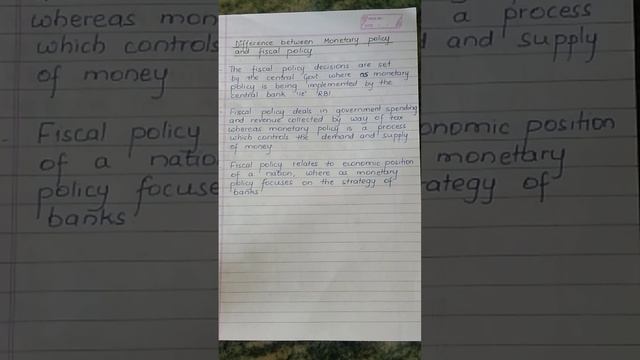 Difference between Monetary policy
and fiscal policy
The fiscal policy decisions are set
by the central Govt where as monetary
policy is being implemented by the
central bank 'ie' RBI
Fiscal policy deals in government spending
and revenue collected by way of tax
whereas monetary policy is a process
which controls the demand and supply
of money
Fiscal policy relates to economic position
of a nation, where as monetary
policy focuses on the strategy of
banks